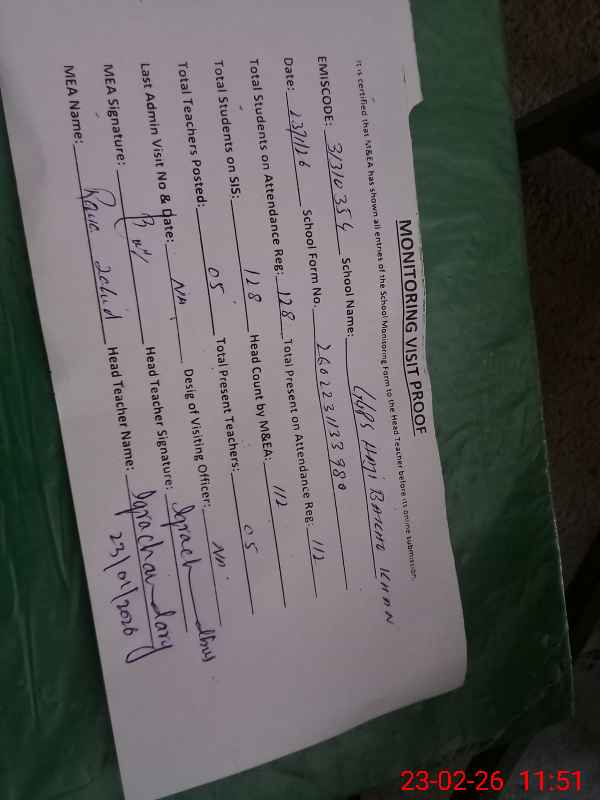 MONITORING VISIT PROOF
It is certified that M&EA has shown all entries of the School Monitoring Form to the Head Teacher before its online submission.
EMISCODE: 31310354 School Name: GGPS HAJI KHAN
Date: School Form No. 2602231133980
Total Students on Attendance Reg: 128 Total Present on Attendance Reg: 112
Total Students on SIS: 128 Head Count by M&EA: 112
Total Teachers Posted: 05 Total Present Teachers: 05
Last Admin Visit No & date: NA Desig of Visiting Officer: NA
MEA Signature: Head Teacher Signature:
MEA Name: Rana Zahid Head Teacher Name:
23-02-26 11:51